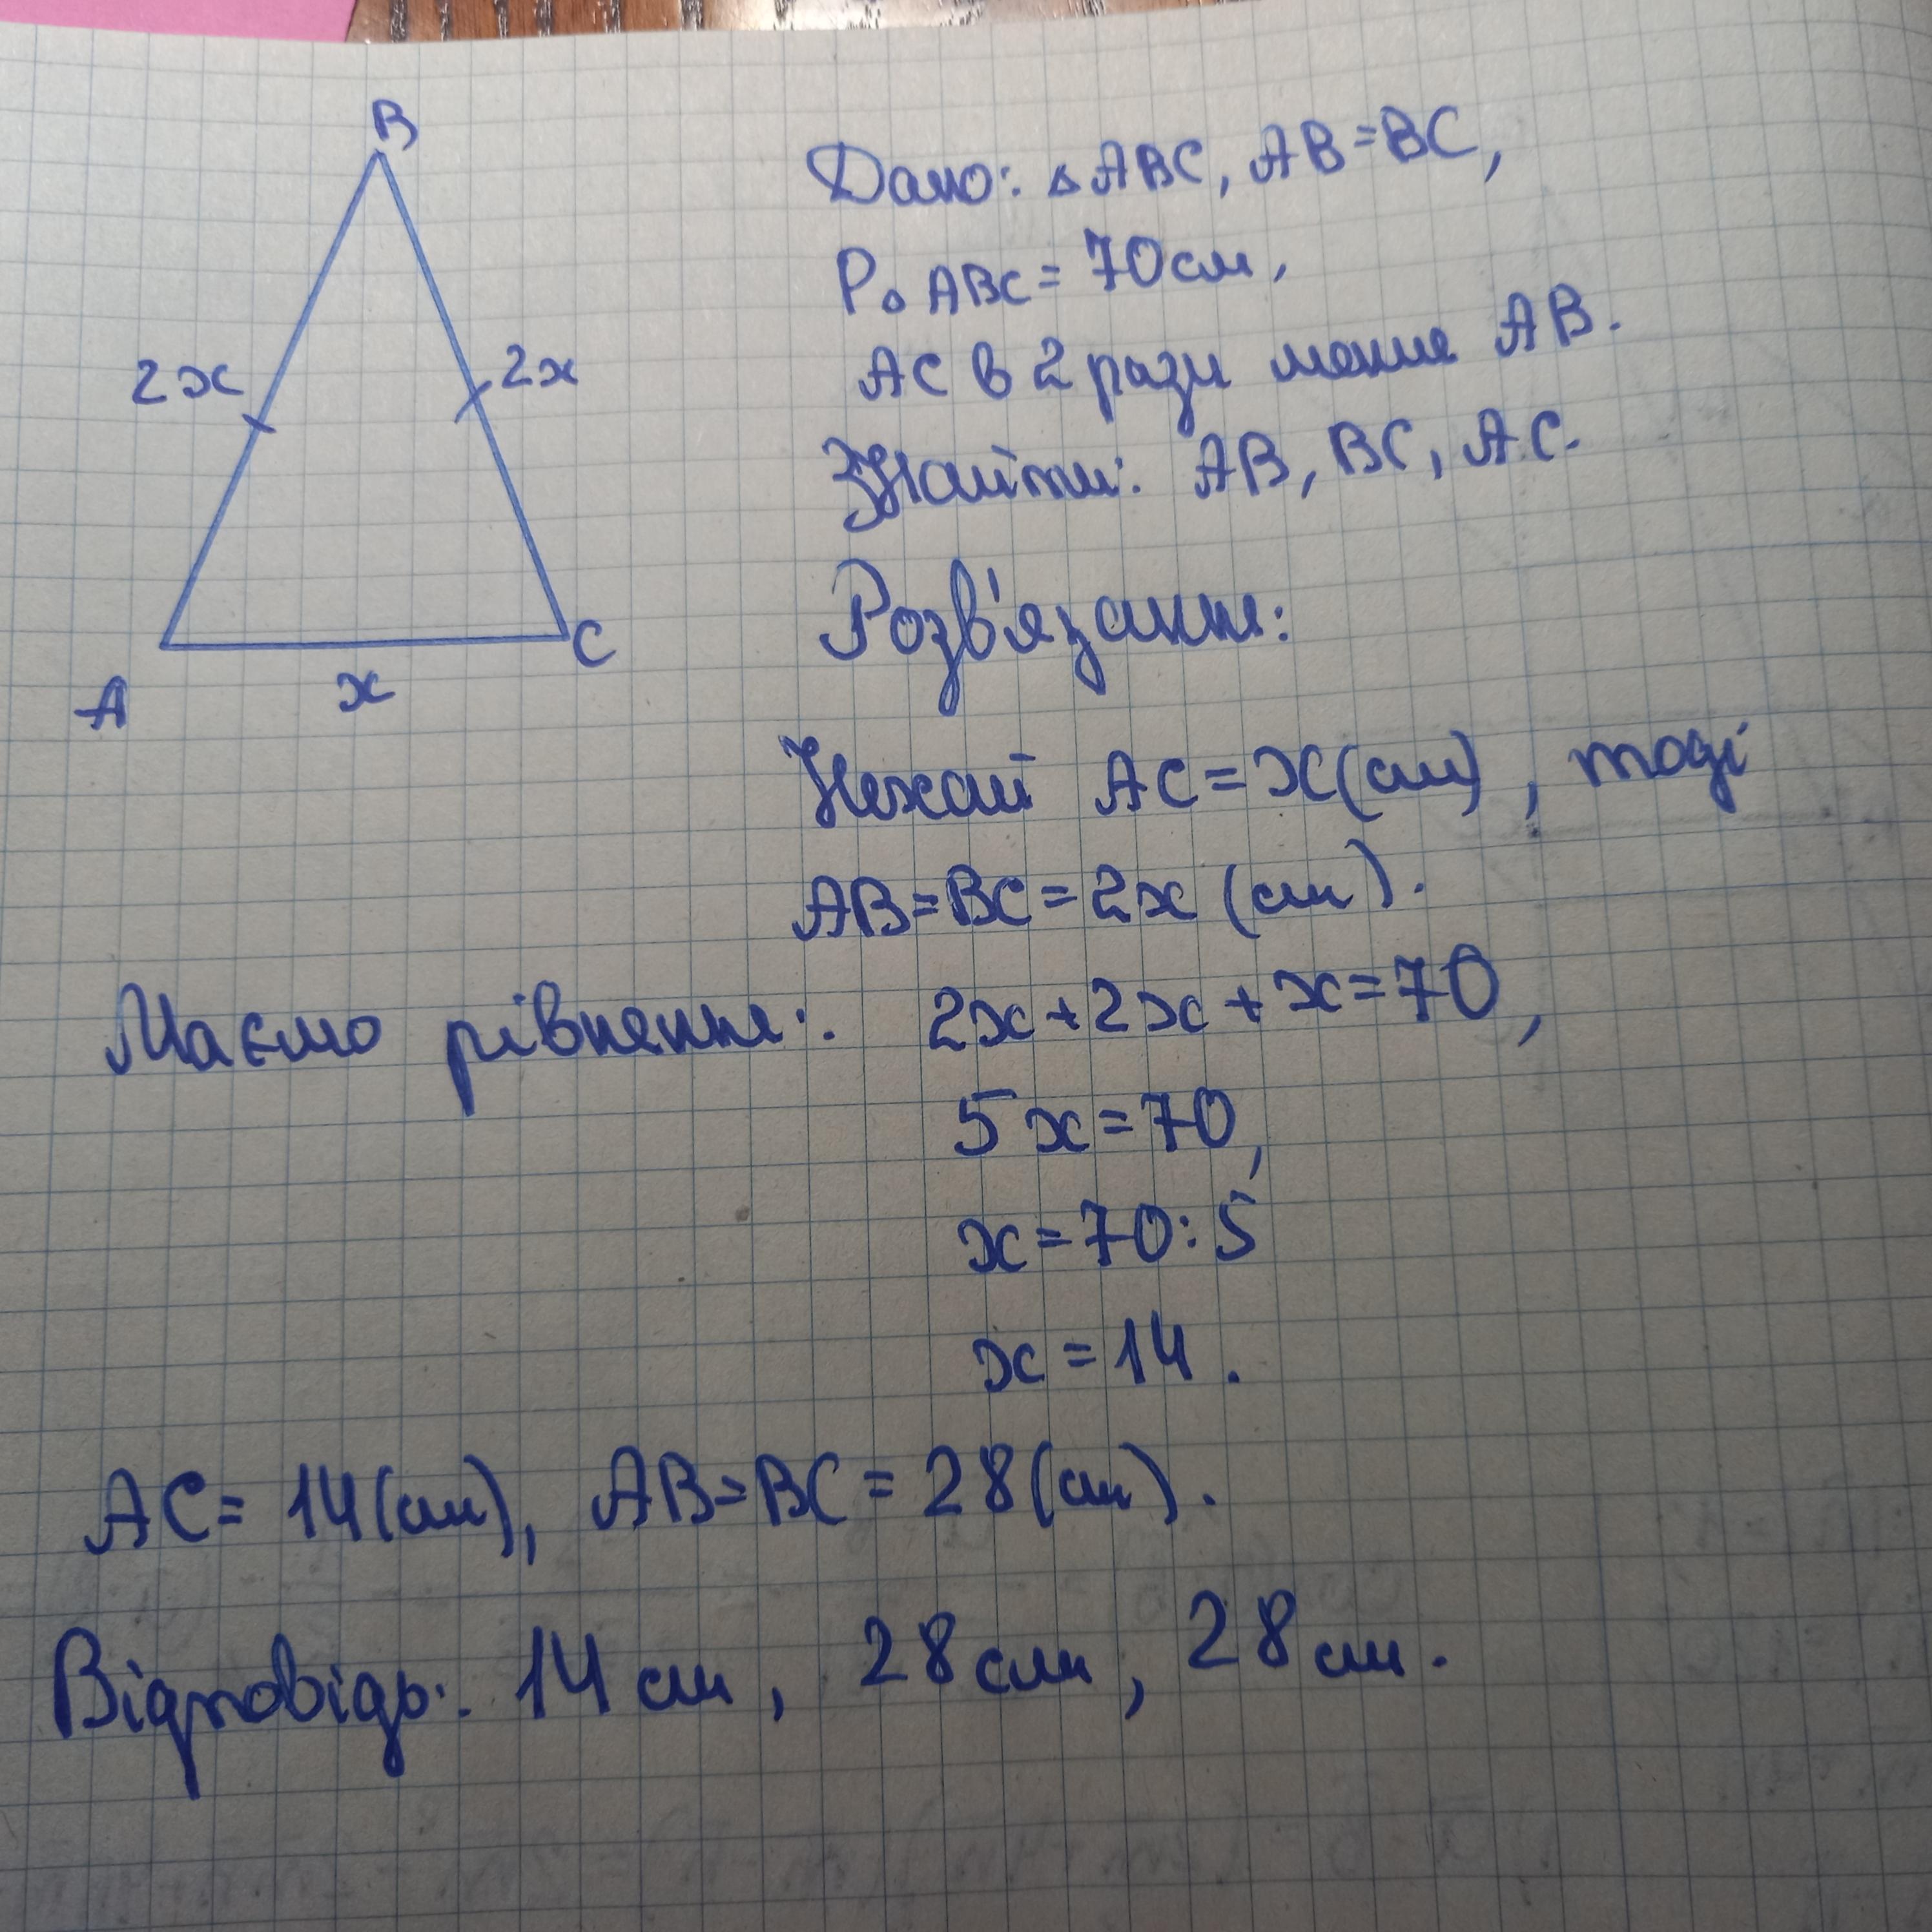 B
2x
2x
A
x
C
Дано: △ABC, AB=BC,
P△ABC = 70см,
AC в 2 рази менше AB.
Знайти: AB, BC, AC.
Розв'язання:
Нехай AC = x(см), тоді
AB=BC=2x (см).
Маємо рівняння: 2x+2x+x=70,
5x=70,
x=70:5
x=14.
AC= 14(см), AB=BC=28(см).
Відповідь: 14 см, 28 см, 28 см.